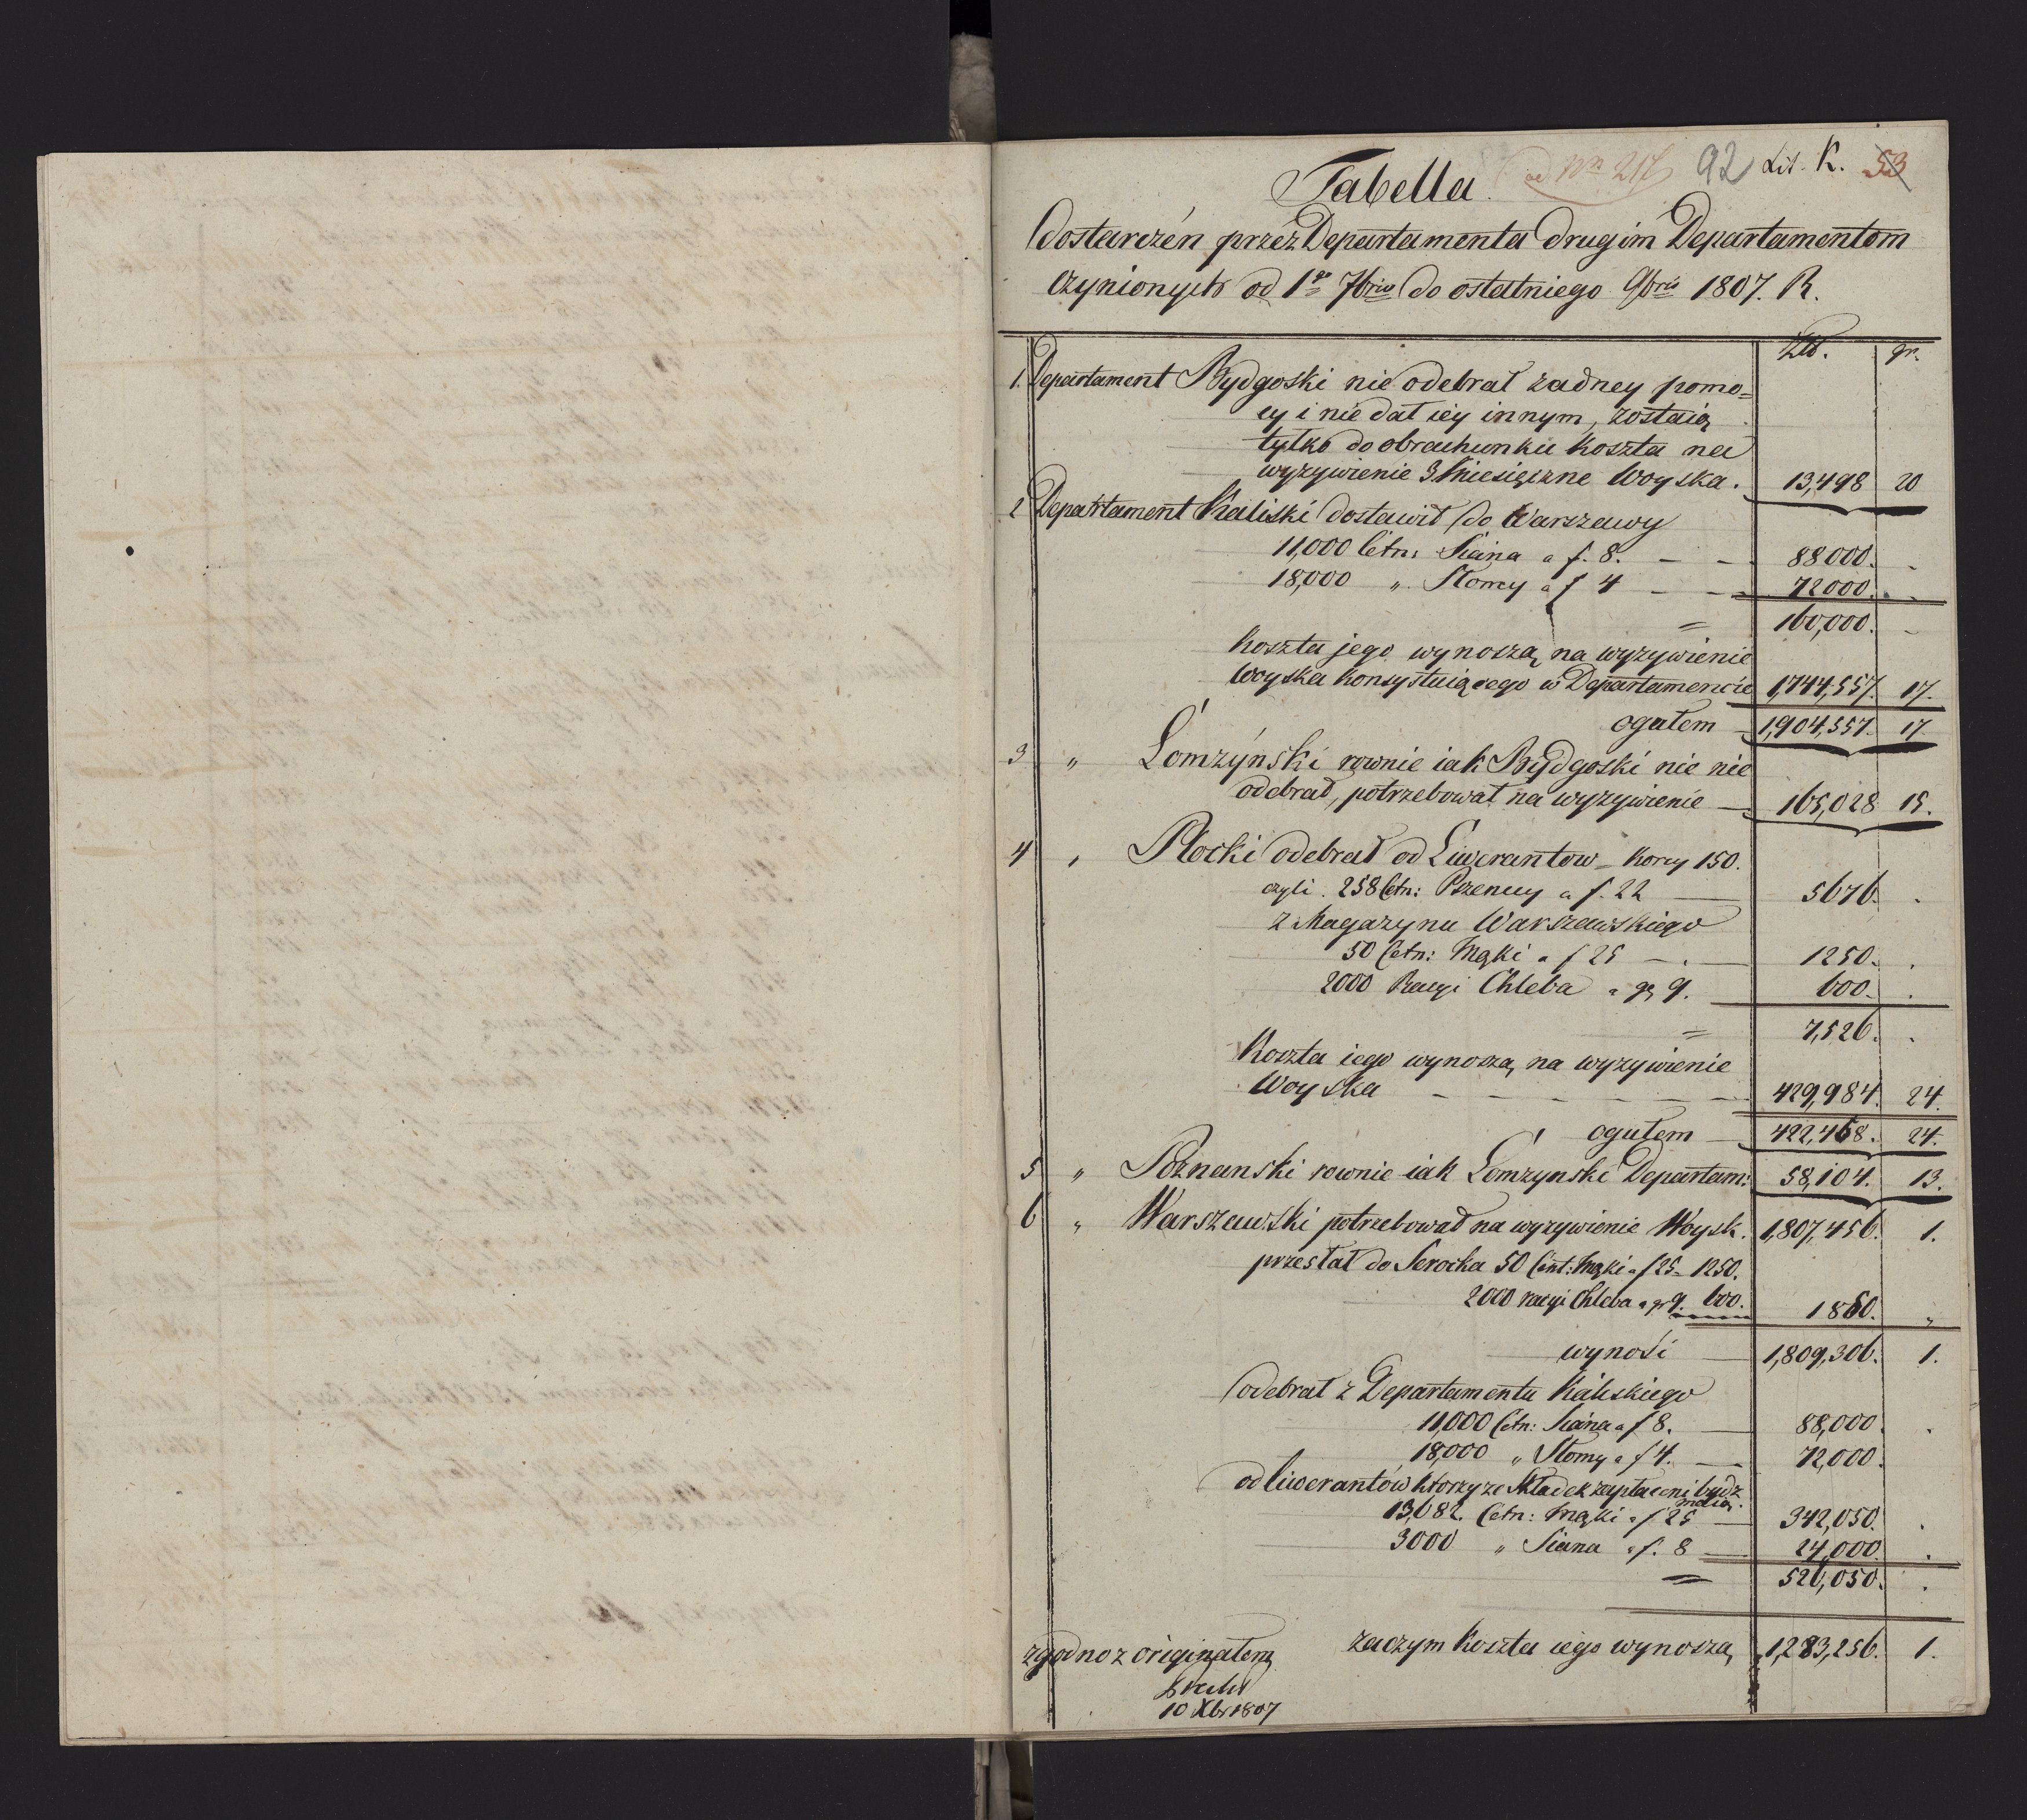 Tabella. ad Nn 217 92 Lit. K. 53
dostarczén przéz Departamenta drugim Departamentom
czynionych od 1go 7bris do ostatniego 9bris 1807. R.
Złł. gr.
1. Departament Bydgoski nie odebrał żadney pomo=
cy i nie dał iéy innym, zostaią
tylko do obrachunku koszta na
wyzywienie 3 Miesięczne Woyska. 13,498 20
2 Departament Kaliski dostawił do Warszawy
11,000 Cetn: Siana a f. 8. — — 88000. -
18,000 „ Słomy a f 4 — — 72000. -
= 160,000. -
Koszta jego wynoszą na wyzywienie
Woyska konsystuiącego w Departamencie 1,744,557. 17.
ogułem 1,904,557. 17
3 „ Łomżyński rownie iak Bydgoski nic nie
odebrał, potrzebował na wyzywienie — 165,028 15.
4 „ Płocki odebrał od Liwerantow – Korcy 150.
czyli 258 Cetn: Pszenicy a f. 22 — 5676. .
z Magazynu Warszawskiego
50 Cetn: Mąki a f 25 — . — 1250. .
2000 Racyi Chleba a gr 9. 600. .
= 7,526. .
Koszta iego wynoszą na wyzywienie
Woyska — — — — — — 429,984. 24.
ogułem 422,458. 24.
5 „ Poznanski rownie iak Łomzynski Departam: 58,104. 13.
6 „ Warszawski potrzebował na wyzywienie Woysk. 1,807,456. 1.
przesłał do Serocka 50 Cent: Mąki a f 25 – 1250.
2000 racyi Chleba a gr 9. 600. 1850. „
wynosi — 1,809,306. 1.
odebrał z Departamentu Kaliskiego
11,000 Cetn: Siana a f 8. — 88,000. .
18,000 „ Słomy a f 4. — 72,000.
od liwerantów ktorzy ze Składek zapłaceni bydz
maią.
13,682. Cetn: Mąki a f 25 — 342,050. .
3000 „ Siana a f. 8 — 24,000. .
= 526,050. .
zaczym Koszta iego wynoszą 1,283,256. 1.
zgodno z originałem
10 Xbr 1807